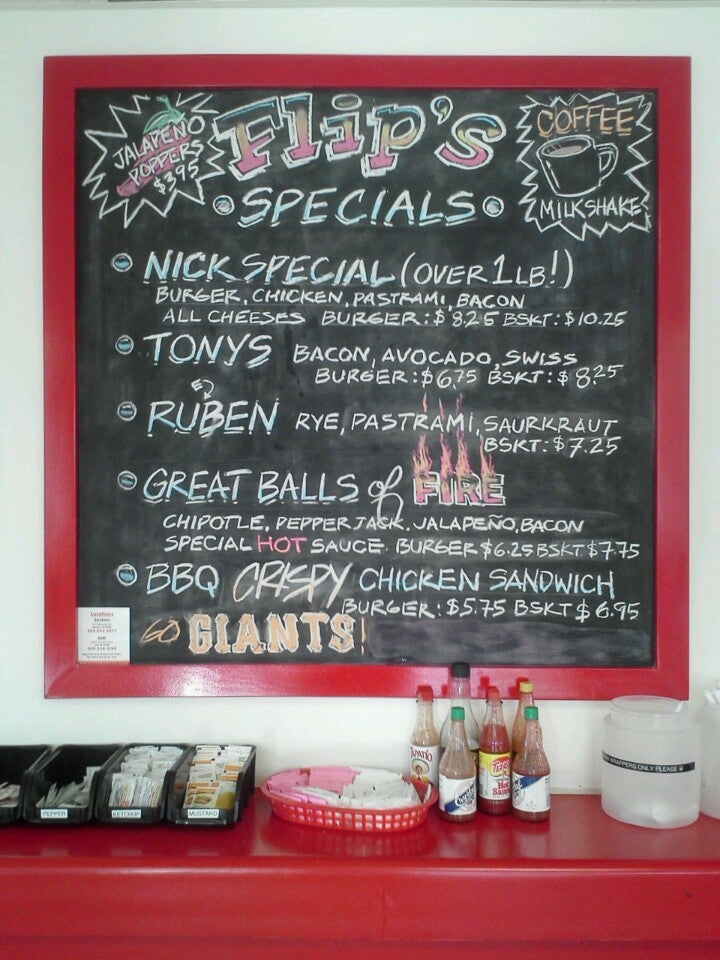 JALAPENO
POPPERS
$3.95
Flip's
COFFEE
MILKSHAKE
SPECIALS
NICK SPECIAL (OVER 1 LB!)
BURGER, CHICKEN, PASTRAMI, BACON
ALL CHEESES BURGER: $8.25 BSKT: $10.25
TONYS BACON, AVOCADO, SWISS
BURGER: $6.75 BSKT: $8.25
E
RUBEN RYE, PASTRAMI, SAURKRAUT
BSKT: $7.25
GREAT BALLS of FIRE
CHIPOTLE, PEPPER JACK, JALAPEÑO, BACON
SPECIAL HOT SAUCE BURGER $6.25 BSKT. $7.75
BBQ CRISPY CHICKEN SANDWICH
BURGER: $5.75 BSKT $6.95
GO GIANTS!
Locations
TAPATIO
Hot
Sauce
WRAPPERS ONLY PLEASE
PEPPER
KETCHUP
MUSTARD